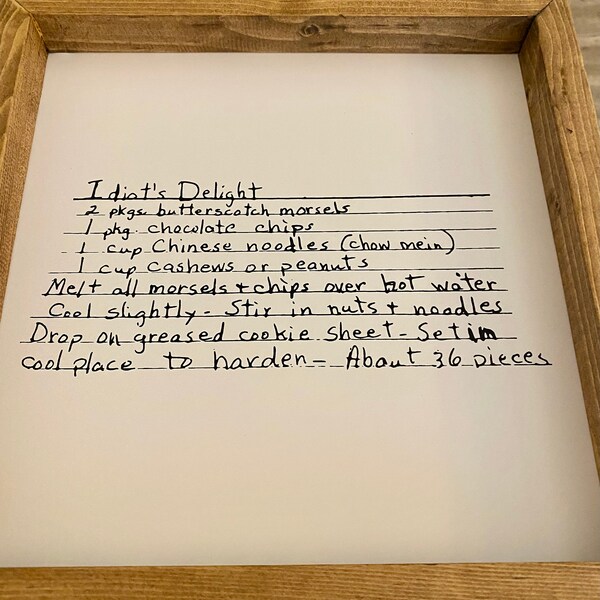 Idiot's Delight
2 pkgs. butterscotch morsels
1 pkg. chocolate chips
1 cup Chinese noodles (chow mein)
1 cup cashews or peanuts
Melt all morsels + chips over hot water
Cool slightly - Stir in nuts + noodles
Drop on greased cookie sheet - Set in
cool place to harden - About 36 pieces